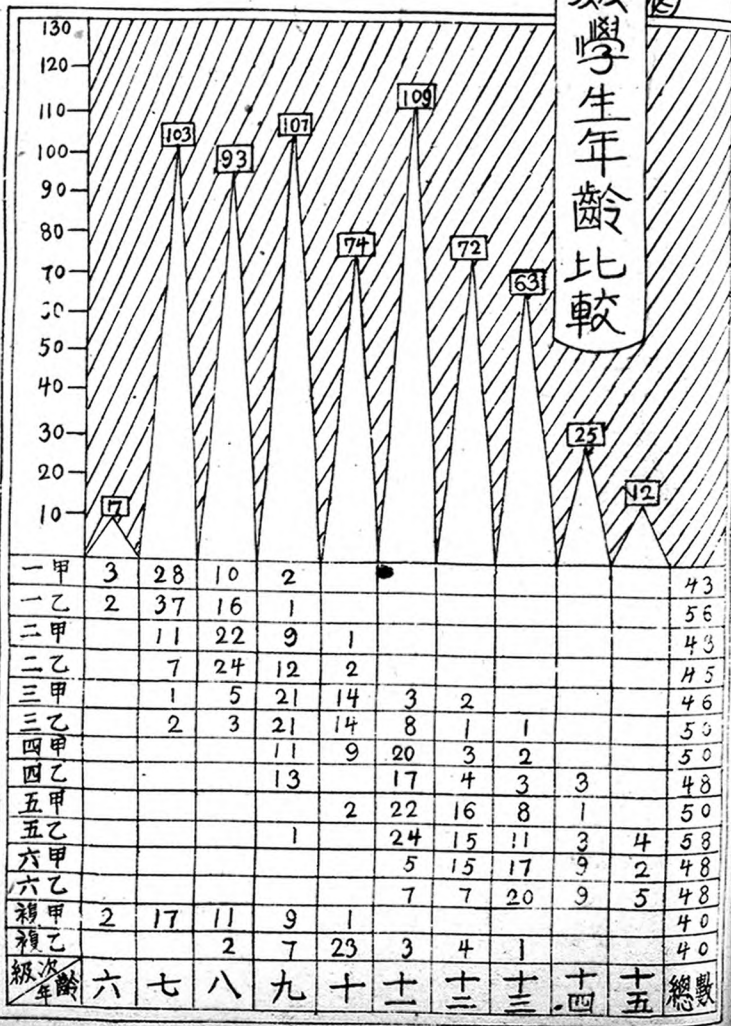 學生年齡比較
130
120
110
100
90
80
70
50
40
30
20
10
7
103
93
107
74
109
72
63
25
12
一甲 3 28 10 2 43
一乙 2 37 16 1 56
二甲 11 22 9 1 43
二乙 7 24 12 2 45
三甲 1 5 21 14 3 2 46
三乙 2 3 21 14 8 1 1 50
四甲 11 9 20 3 2 50
四乙 13 17 4 3 3 48
五甲 2 22 16 8 1 50
五乙 1 24 15 11 3 4 58
六甲 5 15 17 9 2 48
六乙 7 7 20 9 5 48
複甲 2 17 11 9 1 40
複乙 2 7 23 3 4 1 40
級次 年齡 六 七 八 九 十 十一 十二 十三 十四 十五 總數